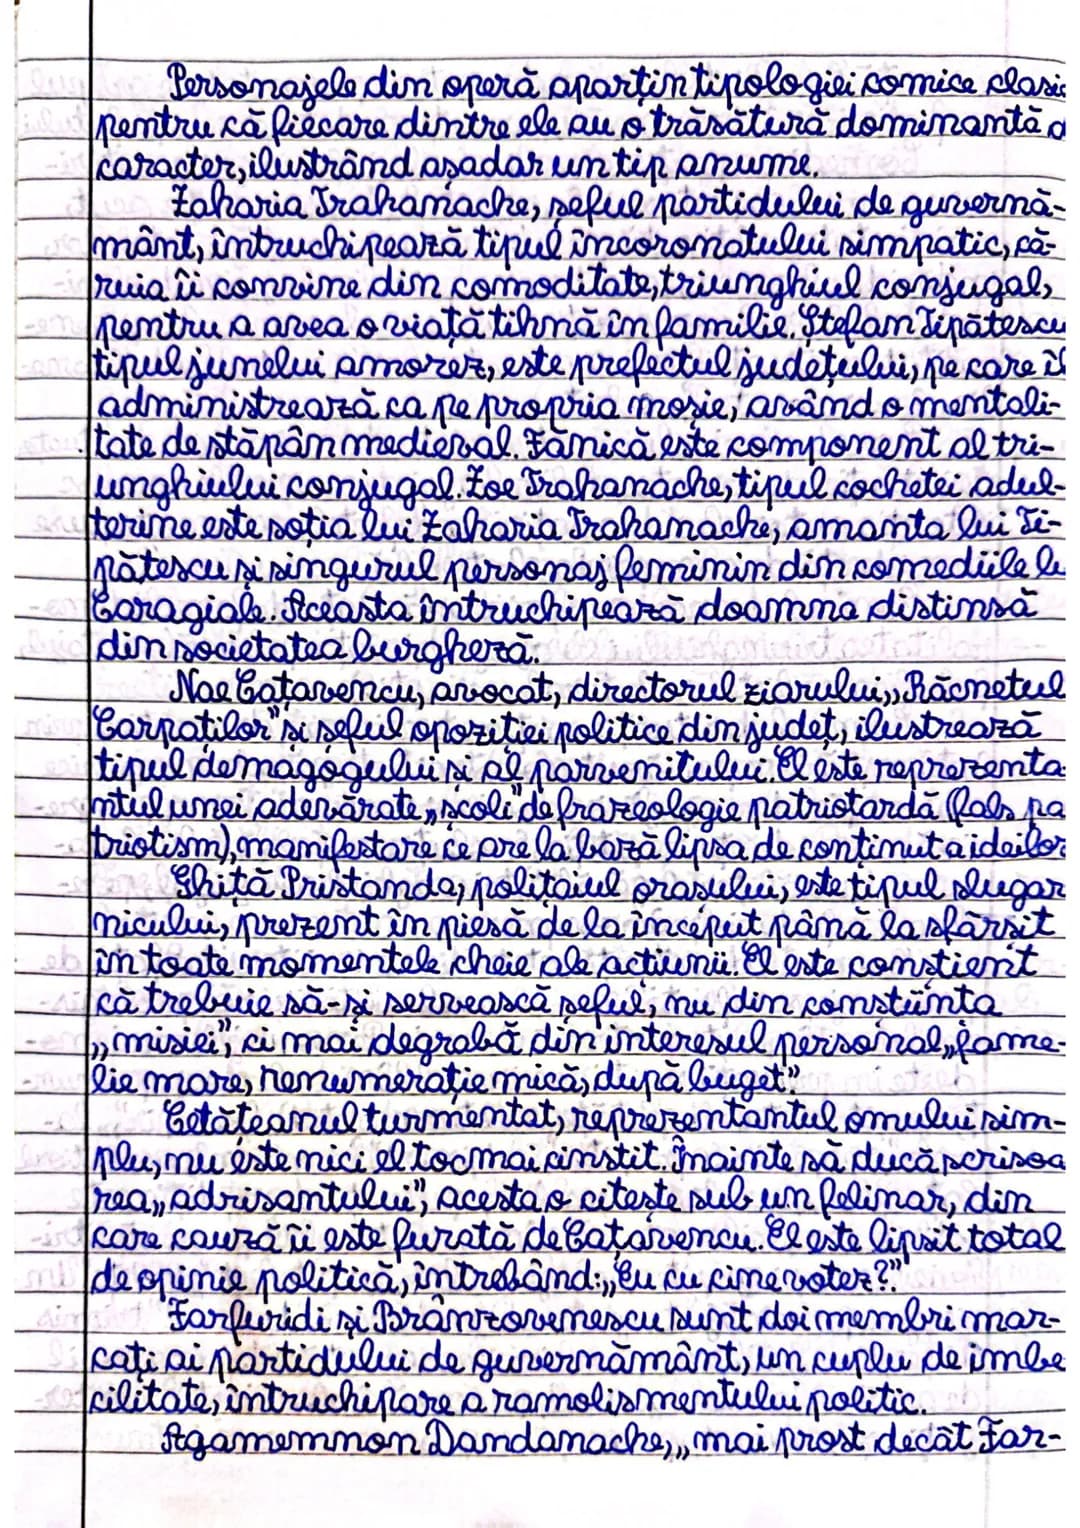 Personajele din operă aparțin tipologiei comice clasic
pentru că fiecare dintre ele au o trăsătură dominantă d
caracter, ilustrând așadar un tip anume.
Zaharia Trahanache, șeful partidului de guvernă-
mânt, întruchipează tipul încoronatului simpatic, că-
ruia îi convine din comoditate, triunghiul conjugal,
pentru a avea o viață tihnă în familie. Ștefan Tipătescu
tipul junelui amorez, este prefectul județului, pe care îl
administrează ca pe propria moșie, având o mentali-
tate de stăpân medieval. Fănică este component al tri-
unghiului conjugal. Zoe Trahanache, tipul cochetei adul-
terine este soția lui Zaharia Trahanache, amanta lui Ti-
pătescu și singurul personaj feminin din comediile lu
Caragiale. Aceasta întruchipează doamna distinsă
din societatea burgheză.
Nae Cațavencu, avocat, directorul ziarului „Răcnetul
Carpaților" și șeful opoziției politice din județ, ilustrează
tipul demagogului și al parvenitului. El este reprezenta-
ntul unei adevărate „școli" de frazeologie patriotardă (fals pa
triotism), manifestare ce are la bază lipsa de conținut a ideilor
Ghiță Pristanda, polițaiul orașului, este tipul slugar
nicului, prezent în piesă de la început până la sfârșit
în toate momentele cheie ale acțiunii. El este conștient
că trebuie să-și servească șeful, nu din conștiința
„misiei", ci mai degrabă din interesul personal „fame-
lie mare, renumerație mică, după buget"
Cetățeanul turmentat, reprezentantul omului sim-
plu, nu este nici el tocmai cinstit. Înainte să ducă scrisoa
rea „adrisantului", acesta o citește sub un felinar, din
care cauză îi este furată de Cațavencu. El este lipsit total
de opinie politică, întrebând: „Eu cu cine votez?"
Farfuridi și Brânzovenescu sunt doi membri mar-
cați ai partidului de guvernământ, un cuplu de imbe
cilitate, întruchipare a ramolismentului politic.
Agamemnon Dandanache, „mai prost decât Far-